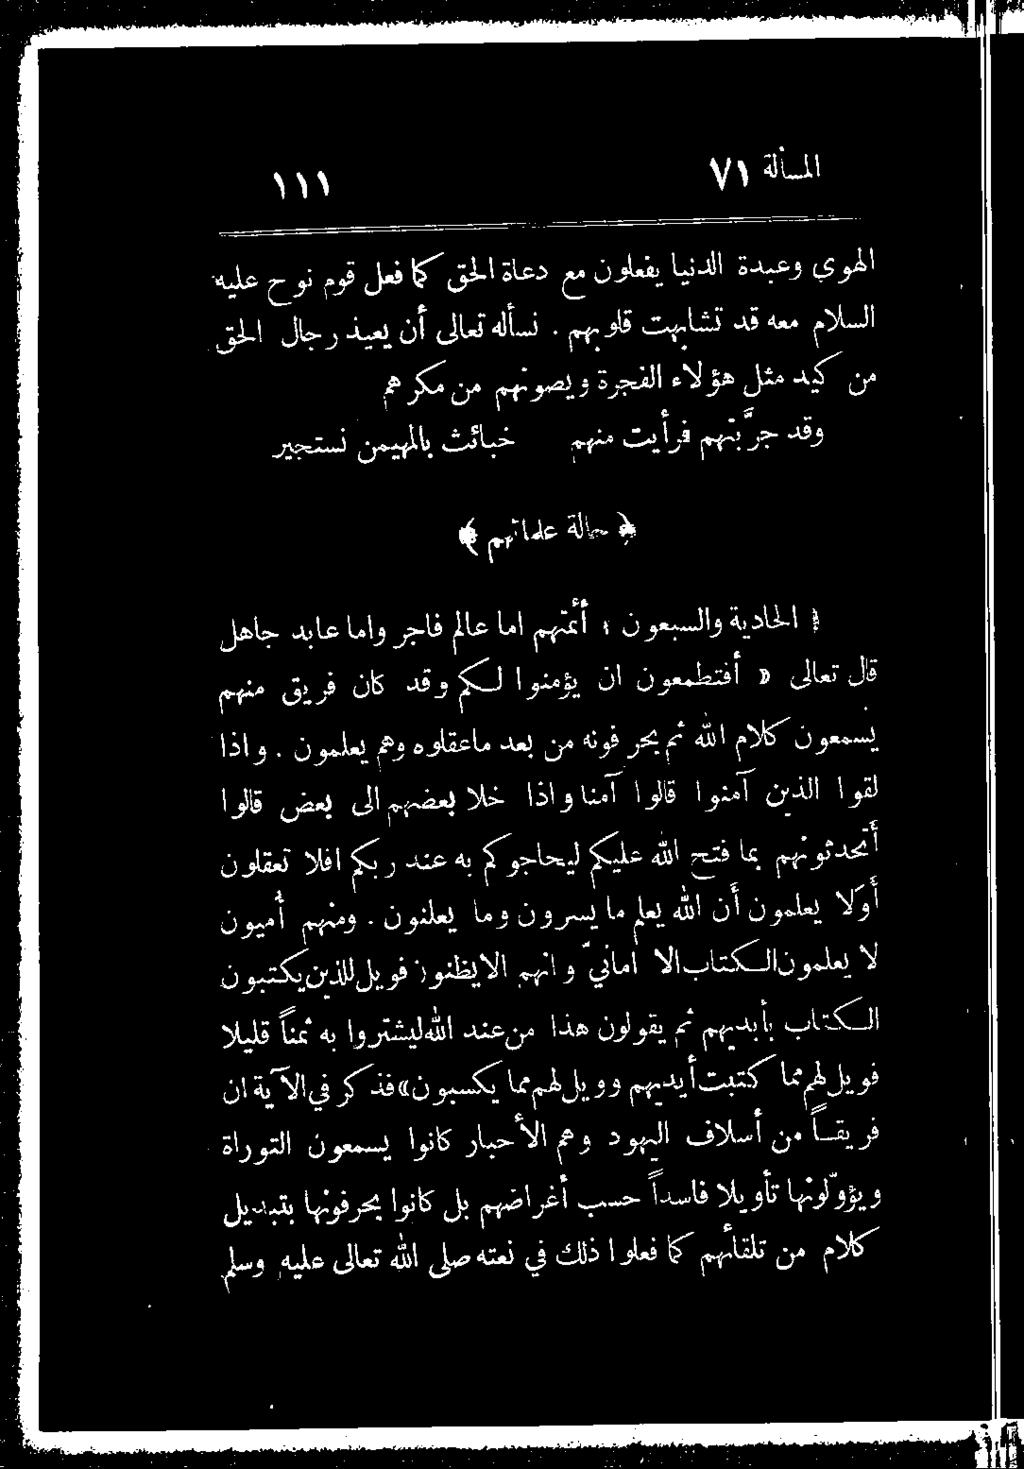 المسألة ٧١
١١١
الهوي وعبدة الدنيا يفعلون مع دعاة الحق كما فعل قوم نوح عليه
السلام معه قد تشابهت قلوبهم . نسأله تعالى أن يعيذ رجال الحق
من كيد مثل هؤلاء الفجرة ويصونهم من مكرهم
وقد جرَّبتهم فرأيت منهم خبائث بالمهيمن نستجير
﴿ حالة علمائهم ﴾
« الحادية والسبعون » أئمتهم اما عالم فاجر واما عابد جاهل
قال تعالى « أفتطمعون ان يؤمنوا لكم وقد كان فريق منهم
يسمعون كلام الله ثم يحرفونه من بعد ماعقلوه وهم يعلمون . واذا
لقوا الذين آمنوا قالوا آمنا واذا خلا بعضهم الى بعض قالوا
أتحدثونهم بما فتح الله عليكم ليحاجوكم به عند ربكم افلا تعقلون
أولا يعلمون أن الله يعلم ما يسرون وما يعلنون . ومنهم أميون
لا يعلمون الكتاب الا امانيّ وانهم الا يظنون فويل للذين يكتبون
الكتاب بأيديهم ثم يقولون هذا من عند الله ليشتروا به ثمناً قليلا
فويل لهم مما كتبت أيديهم وويل لهم مما يكسبون» فذكر في الآية ان
فريقاً من أسلاف اليهود وهم الأحبار كانوا يسمعون التوراة
ويؤوّلونها تأويلا فاسداً حسب أغراضهم بل كانوا يحرفونها بتبديل
كلام من تلقائهم كما فعلوا ذلك في نعته صلى الله تعالى عليه وسلم